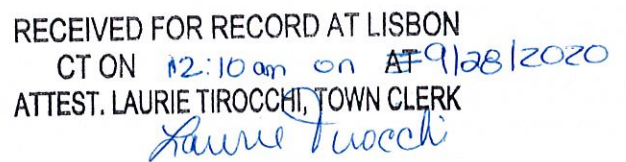 RECEIVED FOR RECORD AT LISBON
CT ON 12:10 am on AT 9/28/2020
ATTEST. LAURIE TIROCCHI, TOWN CLERK
Laurie Tirocchi